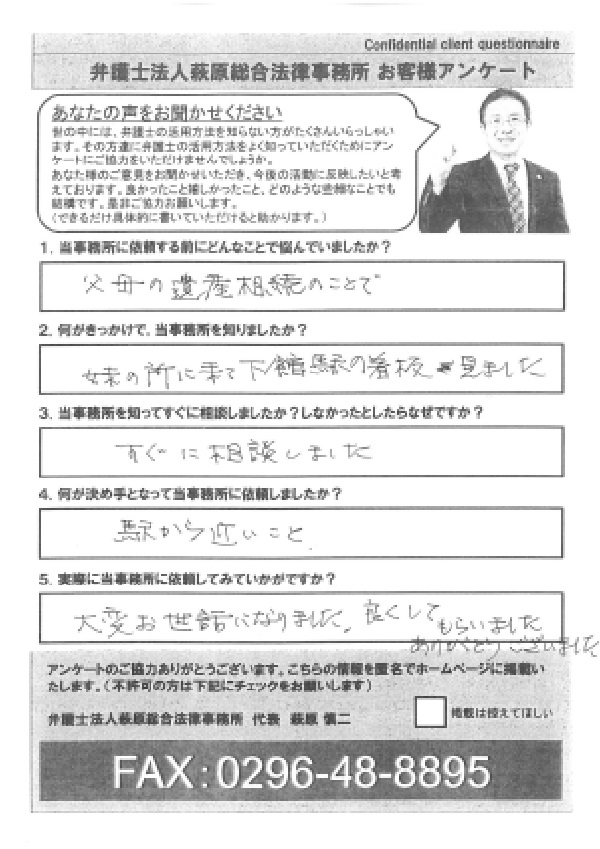 Confidential client questionnaire
弁護士法人萩原総合法律事務所 お客様アンケート
あなたの声をお聞かせください
世の中には、弁護士の活用方法を知らない方がたくさんいらっしゃい
ます。その方達に弁護士の活用方法をよく知っていただくためにアン
ケートにご協力をいただけませんでしょうか。
あなた様のご意見をお聞かせいただき、今後の活動に反映したいと考
えております。良かったこと嬉しかったこと、どのような些細なことでも
結構です。是非ご協力お願いします。
(できるだけ具体的に書いていただけると助かります。)
1. 当事務所に依頼する前にどんなことで悩んでいましたか?
父母の遺産相続のことで
2. 何がきっかけで、当事務所を知りましたか?
妹の所に来て下館駅の看板を見ました
3. 当事務所を知ってすぐに相談しましたか?しなかったとしたらなぜですか?
すぐに相談しました
4. 何が決め手となって当事務所に依頼しましたか?
駅から近いこと
5. 実際に当事務所に依頼してみていかがですか?
大変お世話になりました。良くしてもらいました
ありがとうございました
アンケートのご協力ありがとうございます。こちらの情報を匿名でホームページに掲載い
たします。(不許可の方は下記にチェックをお願いします)
弁護士法人萩原総合法律事務所 代表 萩原 慎二
掲載は控えてほしい
FAX:0296-48-8895